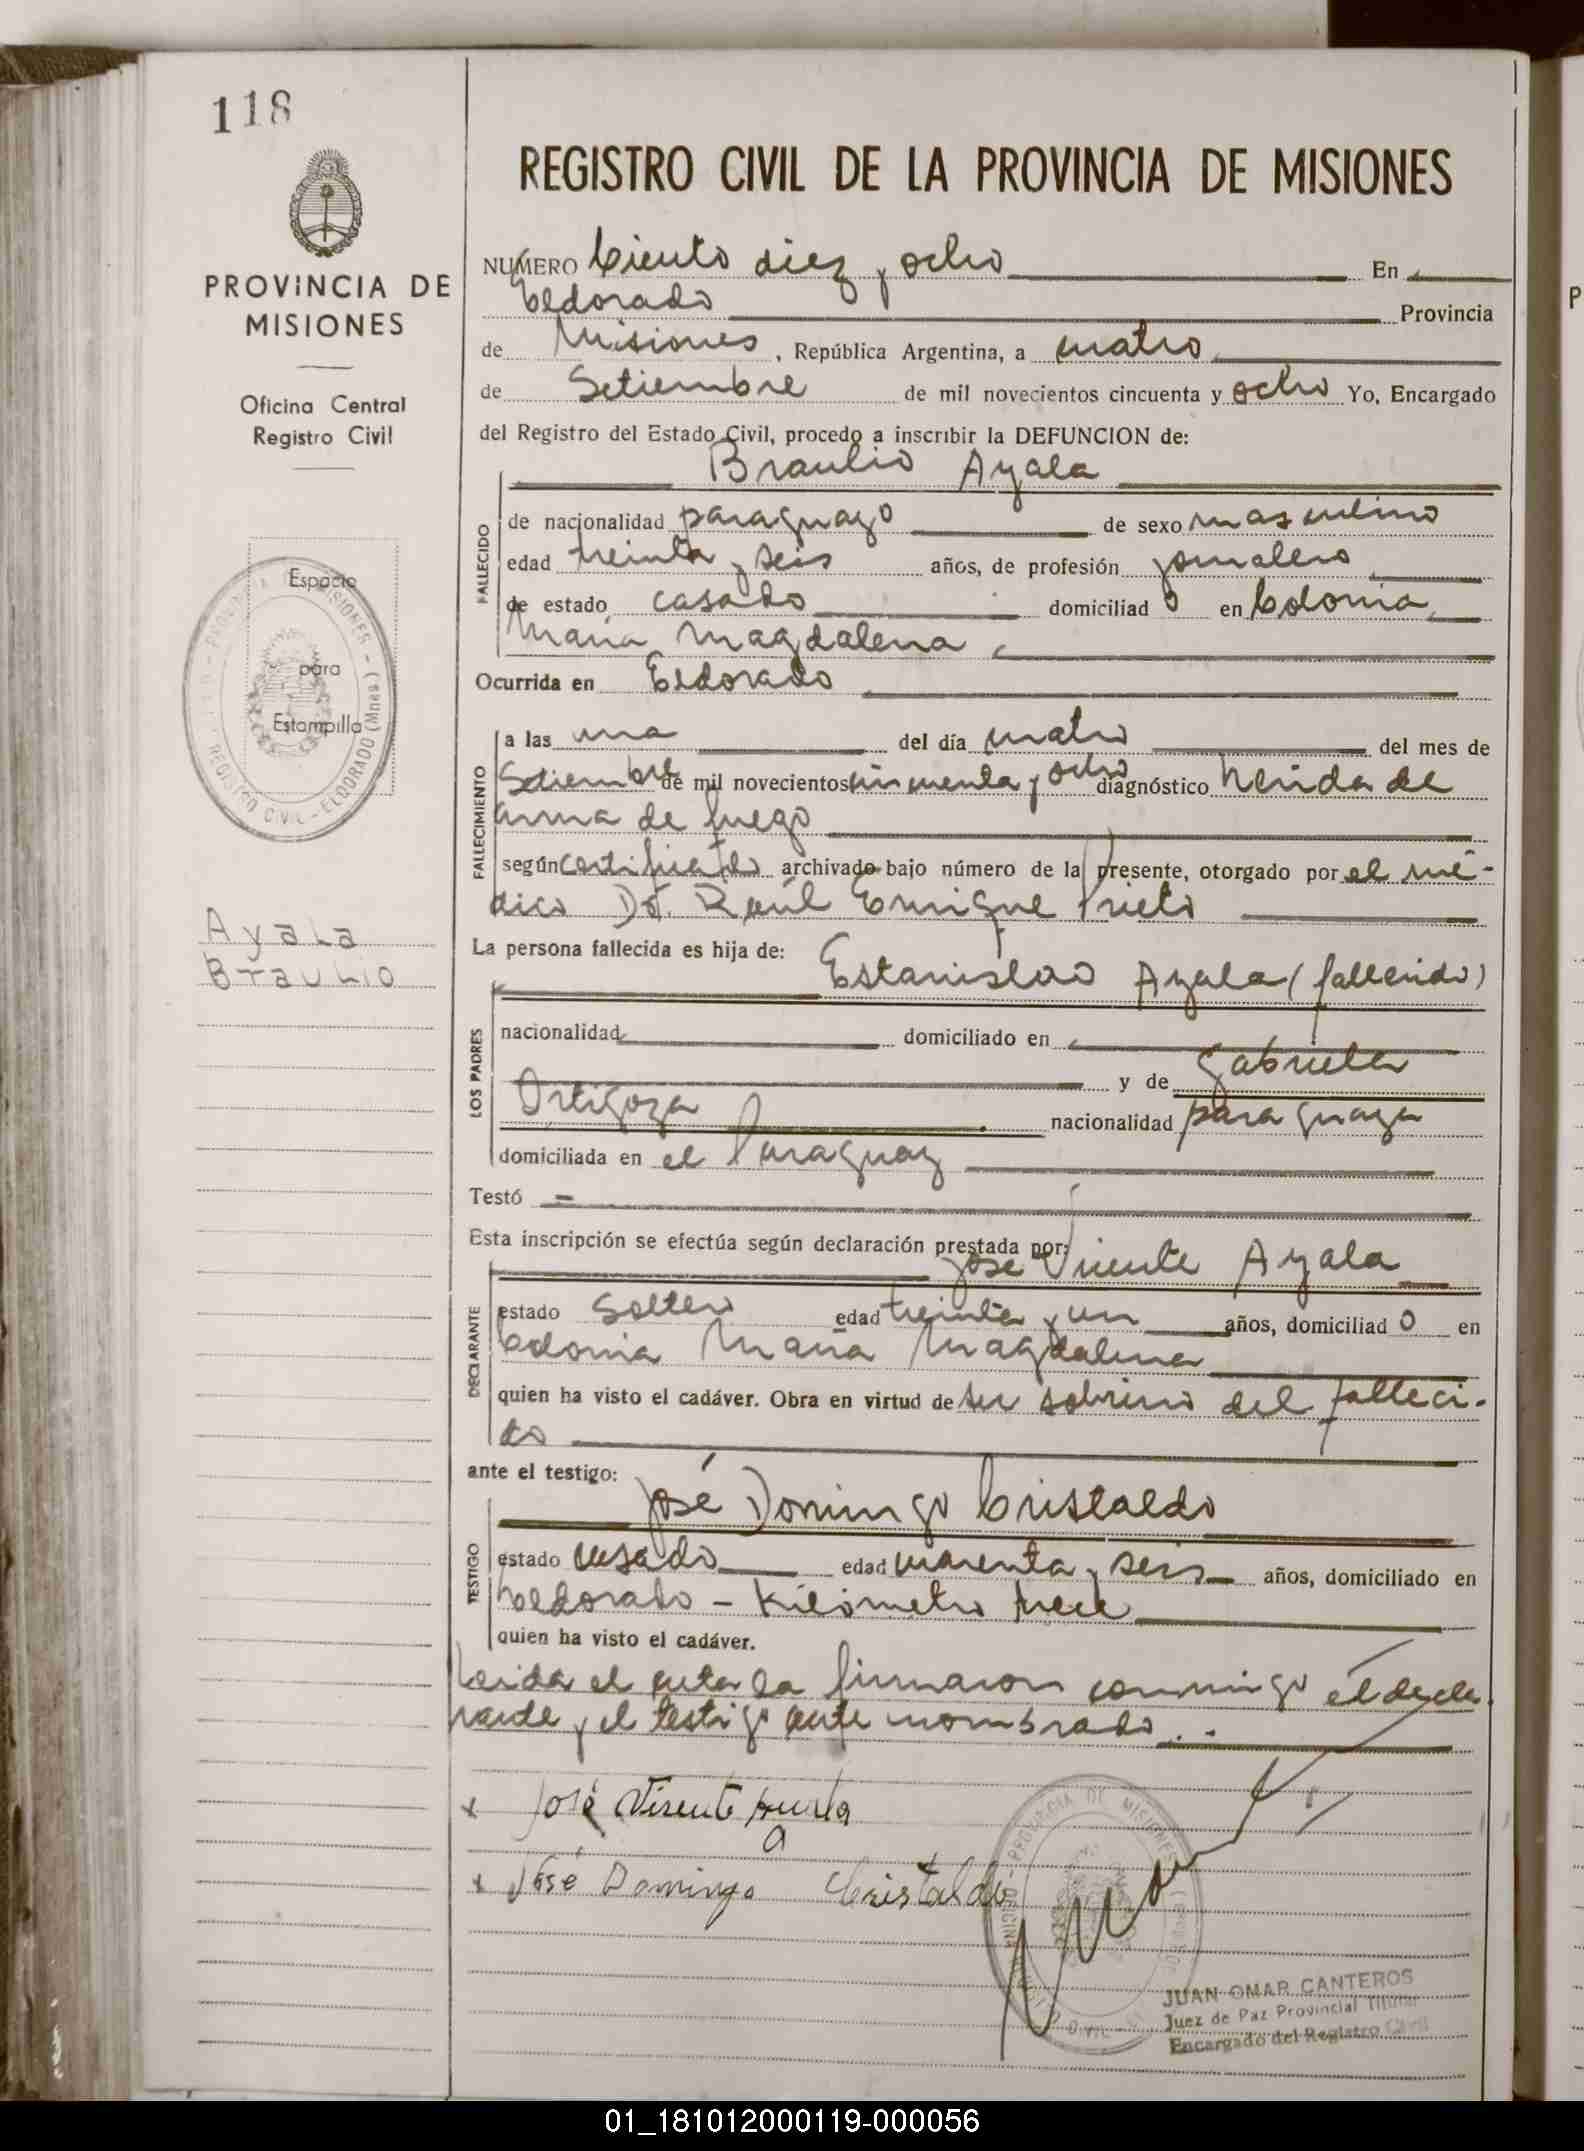 118
PROVINCIA DE
MISIONES
Oficina Central
Registro Civil
Espacio
para
Estampilla
Ayala
Braulio
REGISTRO CIVIL DE LA PROVINCIA DE MISIONES
NUMERO Ciento diez y ocho En
Eldorado Provincia
de Misiones, República Argentina, a cuatro
de Setiembre de mil novecientos cincuenta y ocho Yo, Encargado
del Registro del Estado Civil, procedo a inscribir la DEFUNCION de:
Braulio Ayala
FALLECIDO
de nacionalidad paraguayo de sexo masculino
edad treinta y seis años, de profesión jornalero
de estado casado domiciliado en Colonia
Maria Magdalena
Ocurrida en Eldorado
FALLECIMIENTO
a las una del día cuatro del mes de
Setiembre de mil novecientos cincuenta y ocho diagnóstico herida de
arma de fuego
según certificado archivado bajo número de la presente, otorgado por el mé-
dico Dr. Raúl Enrique Prieto
La persona fallecida es hija de: Estanislao Ayala (fallecido)
LOS PADRES
nacionalidad domiciliado en
y de Gabriela
Ortigoza nacionalidad paraguaya
domiciliada en el Paraguay
Testó
Esta inscripción se efectúa según declaración prestada por:
José Vicente Ayala
DECLARANTE
estado soltero edad treinta y un años, domiciliado en
Colonia Maria Magdalena
quien ha visto el cadáver. Obra en virtud de ser sobrino del falleci-
do
ante el testigo:
José Domingo Cristaldo
TESTIGO
estado casado edad cuarenta y seis años, domiciliado en
Eldorado - Kilómetro trece
quien ha visto el cadáver.
Leida el acta la firmaron conmigo el decla
rante y el testigo ante nombrado.. -
x José Visente Ayala
x José Domingo Cristaldo
PROVINCIA DE MISIONES
JUAN OMAR CANTEROS
Juez de Paz Provincial Titular
Encargado del Registro Civil
01_181012000119-000056